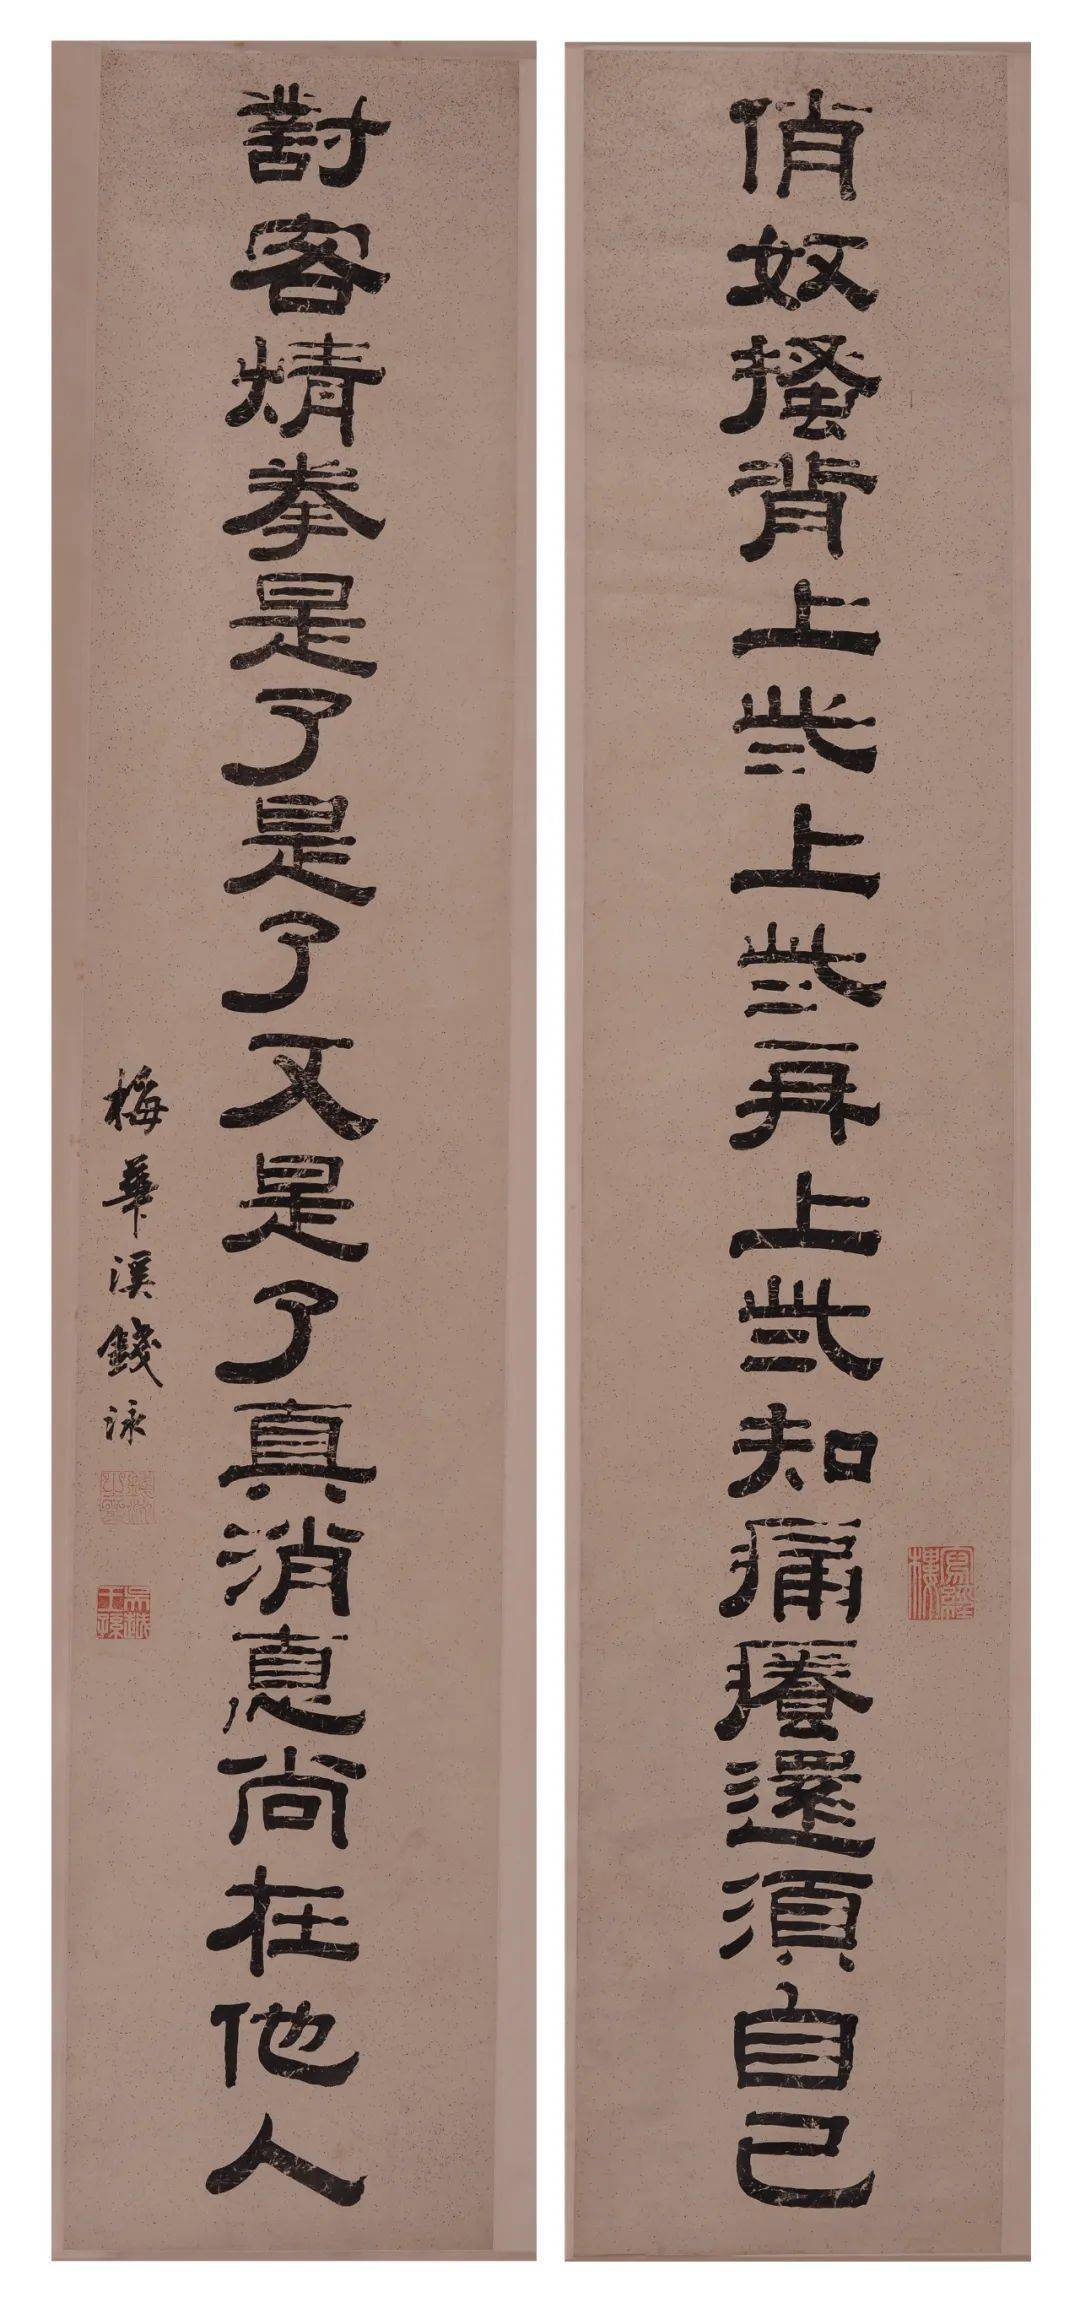 寫經樓
俏奴搔背上些上些再上些知痛癢還須自己
對客猜拳是了是了又是了真消息尚在他人
梅華溪錢泳
吳越王孫